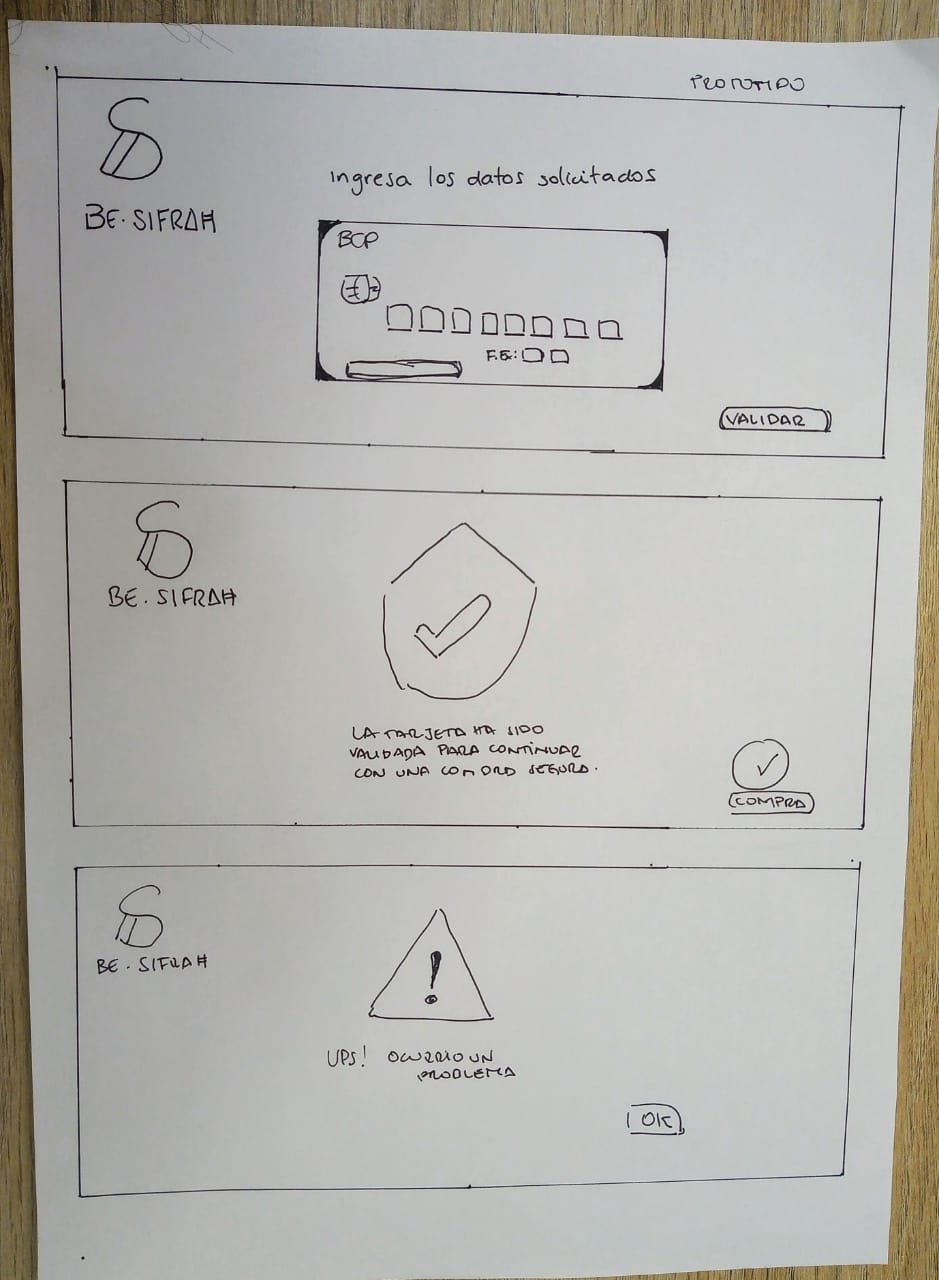 PROTOTIPO
BE. SIFRAH
Ingresa los datos solicitados
BCP
F.E:
VALIDAR
BE. SIFRAH
LA TARJETA HA SIDO
VALIDADA PARA CONTINUAR
CON UNA COMPRA SEGURA.
COMPRA
BE. SIFRAH
UPS! OCURRIO UN
PROBLEMA
OK